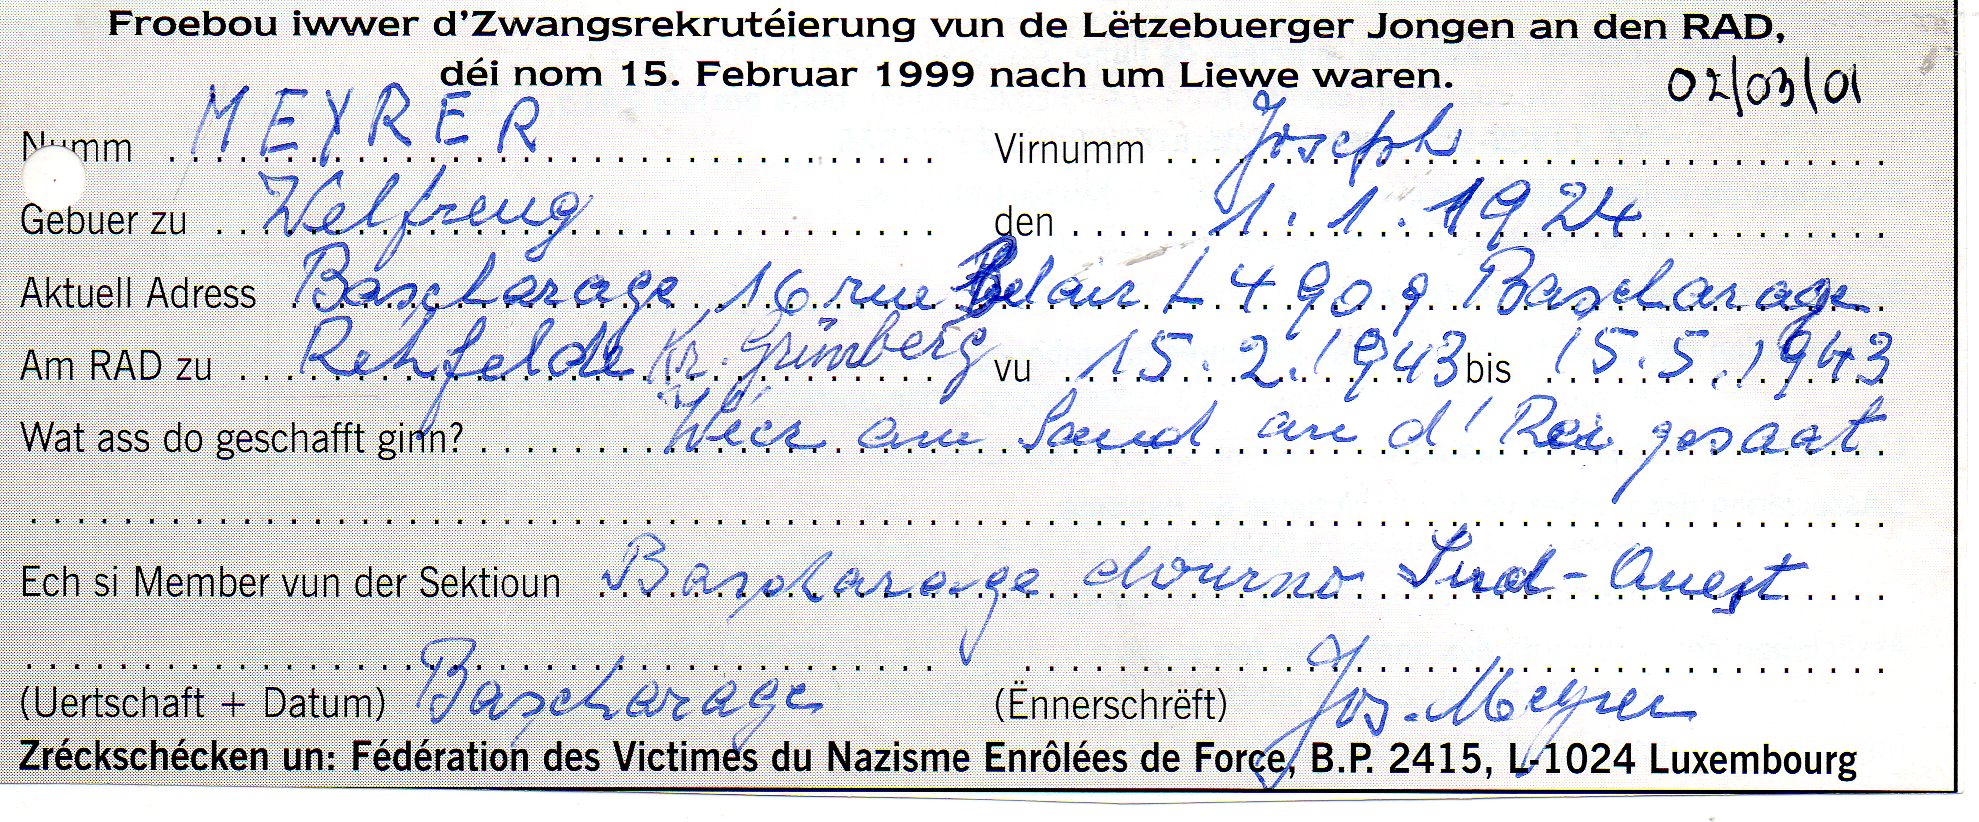 Froebou iwwer d'Zwangsrekrutéierung vun de Lëtzebuerger Jongen an den RAD,
déi nom 15. Februar 1999 nach um Liewe waren.
02/03/01
Numm MEYRER Virnumm Joseph
Gebuer zu Welfreng den 1.1.1924
Aktuell Adress Bascharage 16 rue Belair L 4909 Bascharage
Am RAD zu Rehfelde Kr. Grünberg vu 15.2.1943 bis 15.5.1943
Wat ass do geschafft ginn? am Sand an d'Rei gesaat
Ech si Member vun der Sektioun Bascharage Sud-Ouest
(Uertschaft + Datum) Bascharage (Ënnerschrëft) Jos. Meyrer
Zréckschécken un: Fédération des Victimes du Nazisme Enrôlées de Force, B.P. 2415, L-1024 Luxembourg